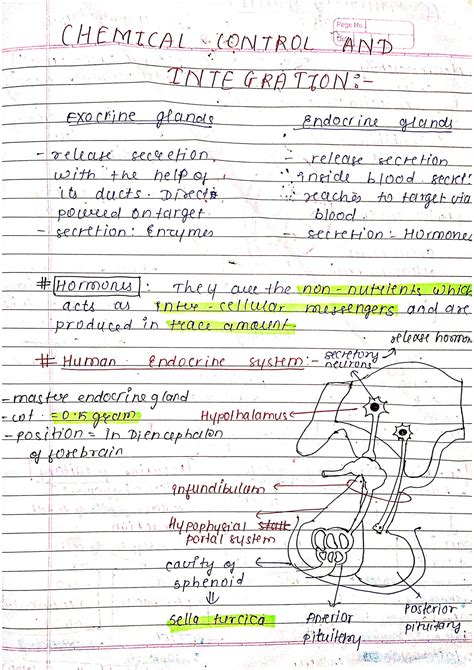 Page No.
CHEMICAL CONTROL AND
INTEGRATION:-
Exocrine glands
Endocrine glands
- release secretion
with the help of
its ducts. Direct
poured on target
- secretion: Enzymes
- release secretion
inside blood
reaches to target via
blood.
- secretion: Hormones
# Hormones: They are the non-nutrients which
acts as inter-cellular messengers and are
produced in trace amount.
release hormon
# Human Endocrine system:-
secretory
neurons
- master endocrine gland
- wt. = 0.5 gram
- position = In Diencephalon
of forebrain
Hypothalamus
infundibulum
Hypophysial
portal system
cavity of
sphenoid
Sella turcica
Anterior
pituitary
Posterior
pituitary.